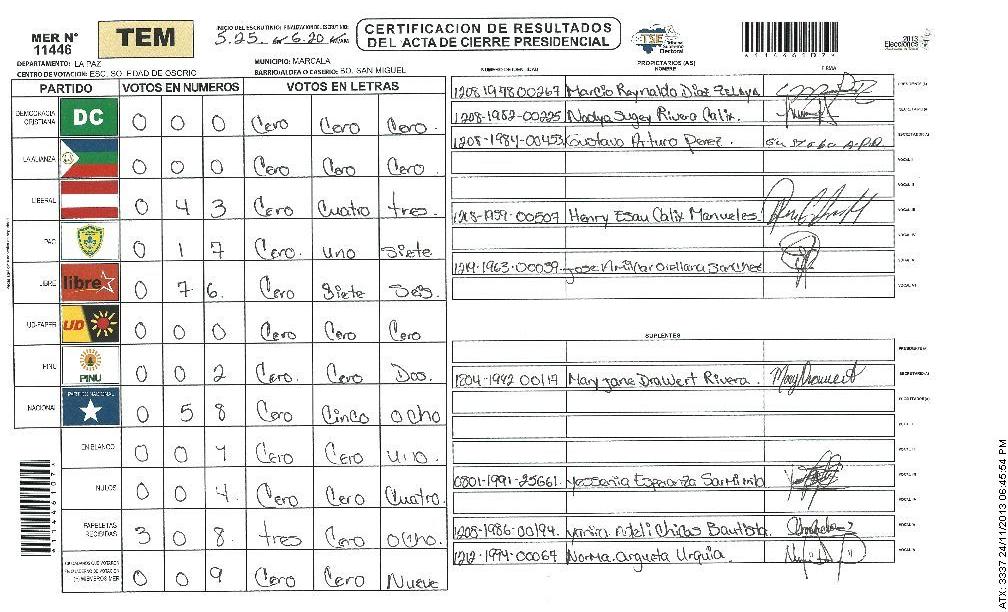 MER N° 11446
TEM
INICIO DEL ESCRUTINIO: FINALIZACION DEL ESCRUTINIO:
5.25. 6.20
CERTIFICACION DE RESULTADOS
DEL ACTA DE CIERRE PRESIDENCIAL
TSE
Tribunal Supremo Electoral
2013
Elecciones
*114461D7*
DEPARTAMENTO: LA PAZ
MUNICIPIO: MARCALA
CENTRO DE VOTACION: ESC. SOLEDAD DE OSORIO
BARRIO/ALDEA O CASERIO: BO. SAN MIGUEL
NUMERO DE IDENTIDAD
PROPIETARIOS (AS)
NOMBRE
FIRMA
PARTIDO VOTOS EN NUMEROS VOTOS EN LETRAS
DEMOCRACIA CRISTIANA DC 0 0 0 Cero Cero Cero.
LA ALIANZA 0 0 0 Cero Cero Cero.
LIBERAL 0 4 3 Cero Cuatro tres.
PAC 0 1 7 Cero. uno Siete
LIBRE libre 0 7 6. Cero Siete Seis.
UD-FAPER UD 0 0 0 Cero Cero Cero
PINU PINU 0 0 2 Cero. Cero Dos.
NACIONAL PARTIDO NACIONAL 0 5 8 Cero Cinco ocho
EN BLANCO 0 0 1 Cero Cero uno.
NULOS 0 0 4. Cero Cero Cuatro.
PAPELETAS RECIBIDAS 3 0 8. tres Cero ocho.
CIUDADANOS QUE VOTARON EN CUADERNO DE VOTACION (+) MIEMBROS MER 0 0 9 Cero Cero Nueve
1208-1978 00267 Marcio Reynaldo Diaz Zelaya PRESIDENTE(A)
1208-1982-00225 Nadya Sugey Rivera Calix. SECRETARIO(A)
1208-1984-00453 Gustavo Arturo Perez. ESCRUTADOR(A)
VOCAL I
VOCAL II
1208-1959-00507 Henry Esau Calix Manueles VOCAL III
VOCAL IV
1219-1963-00039 Jose Orellana Sanchez VOCAL V
VOCAL VI
SUPLENTES
PRESIDENTE(A)
1804-1992 00119 Mary Jane Drawert Rivera. SECRETARIO(A)
ESCRUTADOR(A)
VOCAL I
VOCAL II
0801-1991-25661 Yessenia Esperanza VOCAL III
VOCAL IV
1208-1986-00194. Chicas Bautista. VOCAL V
1212-1994-00067 Norma Argueta Urquia VOCAL VI
*11446107*
ATX: 3337 24/11/2013 06:45:54 PM